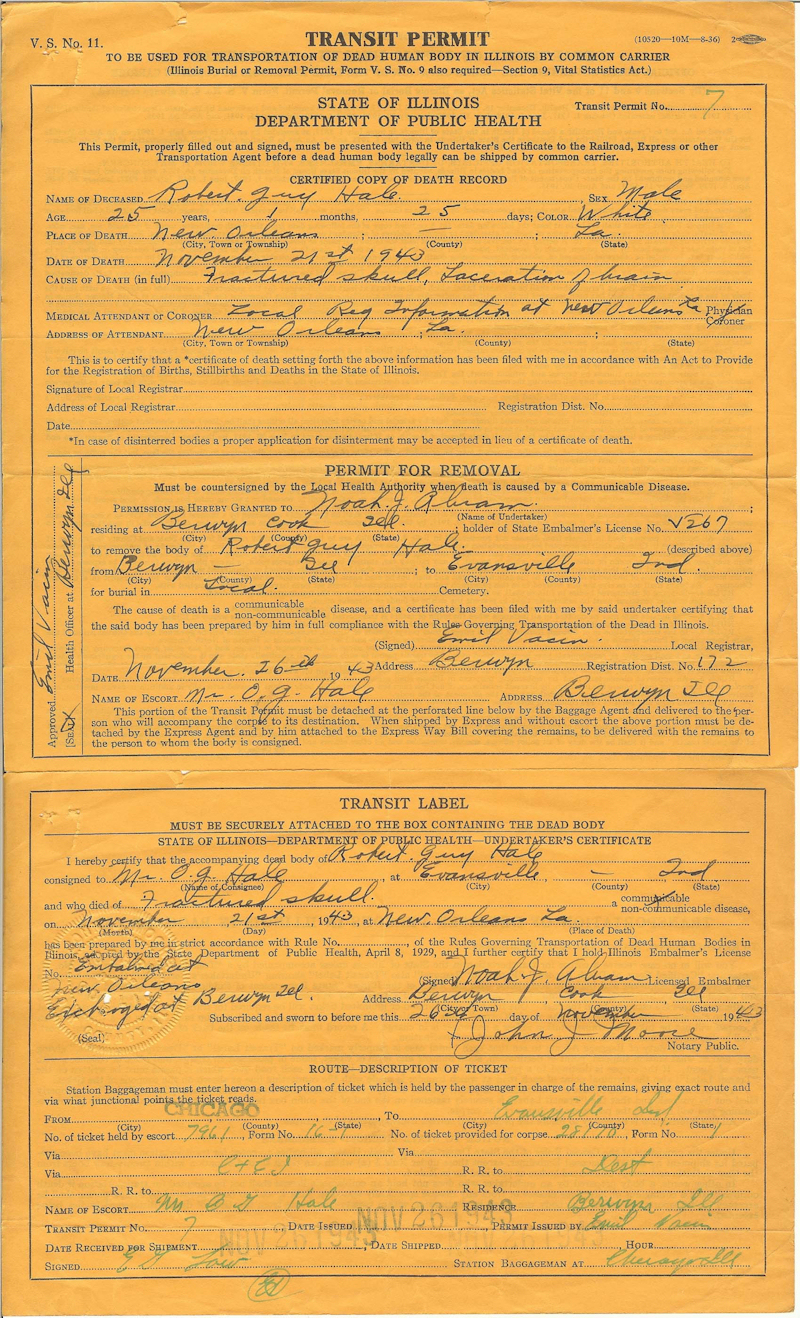 V. S. No. 11.
TRANSIT PERMIT
(10520—10M—8-36) 2
TO BE USED FOR TRANSPORTATION OF DEAD HUMAN BODY IN ILLINOIS BY COMMON CARRIER
(Illinois Burial or Removal Permit, Form V. S. No. 9 also required—Section 9, Vital Statistics Act.)
STATE OF ILLINOIS
Transit Permit No. 7
DEPARTMENT OF PUBLIC HEALTH
This Permit, properly filled out and signed, must be presented with the Undertaker's Certificate to the Railroad, Express or other
Transportation Agent before a dead human body legally can be shipped by common carrier.
CERTIFIED COPY OF DEATH RECORD
NAME OF DECEASED Robert Guy Hale SEX Male
AGE 25 years, 1 months, 25 days; COLOR White
PLACE OF DEATH New Orleans ; — ; La.
(City, Town or Township) (County) (State)
DATE OF DEATH November 21st 1943
CAUSE OF DEATH (in full) Fractured skull, Laceration of brain
MEDICAL ATTENDANT OR CORONER Local Reg Information at New Orleans La Physician
Coroner
ADDRESS OF ATTENDANT New Orleans ; La. ;
(City, Town or Township) (County) (State)
This is to certify that a *certificate of death setting forth the above information has been filed with me in accordance with An Act to Provide
for the Registration of Births, Stillbirths and Deaths in the State of Illinois.
Signature of Local Registrar
Address of Local Registrar Registration Dist. No.
Date
*In case of disinterred bodies a proper application for disinterment may be accepted in lieu of a certificate of death.
PERMIT FOR REMOVAL
Must be countersigned by the Local Health Authority when death is caused by a Communicable Disease.
PERMISSION IS HEREBY GRANTED TO Noah J. ;
(Name of Undertaker)
residing at Berwyn Cook Ill ; holder of State Embalmer's License No. V267
(City) (County) (State)
to remove the body of Robert Guy Hale (described above)
from Berwyn — Ill ; to Evansville Ind.
(City) (County) (State) (City) (County) (State)
for burial in Local Cemetery.
The cause of death is a communicable
non-communicable disease, and a certificate has been filed with me by said undertaker certifying that
the said body has been prepared by him in full compliance with the Rules Governing Transportation of the Dead in Illinois.
(Signed) Emil Vacin Local Registrar,
DATE November 26th 1943 Address Berwyn Registration Dist. No. 172
NAME OF ESCORT Mr. O. G. Hale ADDRESS Berwyn Ill
This portion of the Transit Permit must be detached at the perforated line below by the Baggage Agent and delivered to the per-
son who will accompany the corpse to its destination. When shipped by Express and without escort the above portion must be de-
tached by the Express Agent and by him attached to the Express Way Bill covering the remains, to be delivered with the remains to
the person to whom the body is consigned.
Approved Emil Vacin
[SEAL] Health Officer at Berwyn Ill
TRANSIT LABEL
MUST BE SECURELY ATTACHED TO THE BOX CONTAINING THE DEAD BODY
STATE OF ILLINOIS—DEPARTMENT OF PUBLIC HEALTH—UNDERTAKER'S CERTIFICATE
I hereby certify that the accompanying dead body of Robert Guy Hale
consigned to Mr. O. G. Hale, at Evansville, — Ind
(Name of Consignee) (City) (County) (State)
and who died of Fractured skull. a communicable
non-communicable disease,
on November 21st, 1943, at New Orleans La.
(Month) (Day) (Place of Death)
has been prepared by me in strict accordance with Rule No. , of the Rules Governing Transportation of Dead Human Bodies in
Illinois, adopted by the State Department of Public Health, April 8, 1929, and I further certify that I hold Illinois Embalmer's License
No. Embalmed at
New Orleans
(Signed) Noah J. Licensed Embalmer
Exchanged at Berwyn Ill. Address Berwyn Cook Ill
(City or Town) (County) (State)
Subscribed and sworn to before me this 26th day of November 1943
(Seal) John J Moore
Notary Public.
ROUTE—DESCRIPTION OF TICKET
Station Baggageman must enter hereon a description of ticket which is held by the passenger in charge of the remains, giving exact route and
via what junctional points the ticket reads.
FROM CHICAGO To Evansville Ind
(City) (County) (State) (City) (County) (State)
No. of ticket held by escort 7961, Form No. No. of ticket provided for corpse, Form No. 1
Via Via
Via C+EI R. R. to Dest
R. R. to R. R. to
NAME OF ESCORT Mr O G Hale RESIDENCE Berwyn Ill
TRANSIT PERMIT NO. 7 DATE ISSUED NOV 26 1943 PERMIT ISSUED BY Emil Vacin
DATE RECEIVED FOR SHIPMENT NOV 26 1943 DATE SHIPPED HOUR
SIGNED STATION BAGGAGEMAN AT Chicago Ill